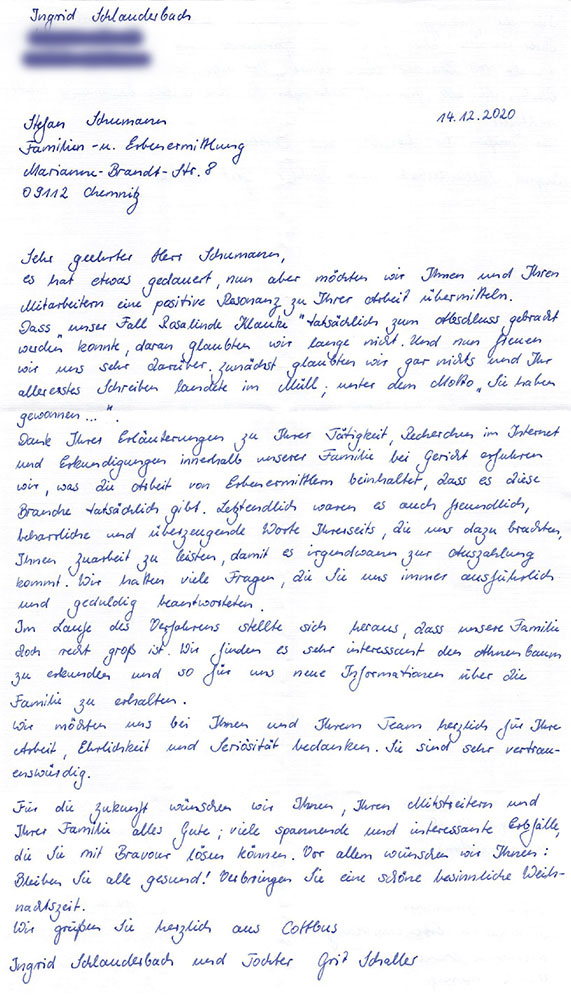 Ingrid Schlauderbach
Stefan Schumann
14.12.2020
Familien- u. Erbenermittlung
Marianne-Brandt-Str. 8
09112 Chemnitz
Sehr geehrter Herr Schumann,
es hat etwas gedauert, nun aber möchten wir Ihnen und Ihren
Mitarbeitern eine positive Resonanz zu Ihrer Arbeit übermitteln.
Dass "unser Fall Rosalinde Klauke" tatsächlich zum Abschluss gebracht
werden konnte, daran glaubten wir lange nicht. Und nun freuen
wir uns sehr darüber. Zunächst glaubten wir gar nichts und Ihr
allererstes Schreiben landete im Müll; unter dem Motto „Sie haben
gewonnen...".
Dank Ihrer Erläuterungen zu Ihrer Tätigkeit, Recherchen im Internet
und Erkundigungen innerhalb unserer Familie bei Gericht erfuhren
wir, was die Arbeit von Erbenermittlern beinhaltet, dass es diese
Branche tatsächlich gibt. Letztendlich waren es auch freundlich,
beharrliche und überzeugende Worte Ihrerseits, die uns dazu brachten,
Ihnen Zuarbeit zu leisten, damit es irgendwann zur Auszahlung
kommt. Wir hatten viele Fragen, die Sie uns immer ausführlich
und geduldig beantworteten.
Im Laufe des Verfahrens stellte sich heraus, dass unsere Familie
doch recht groß ist. Wir finden es sehr interessant den Ahnenbaum
zu erkunden und so für uns neue Informationen über die
Familie zu erhalten.
Wir möchten uns bei Ihnen und Ihrem Team herzlich für Ihre
Arbeit, Ehrlichkeit und Seriösität bedanken. Sie sind sehr vertrau-
enswürdig.
Für die Zukunft wünschen wir Ihnen, Ihren Mitstreitern und
Ihrer Familie alles Gute; viele spannende und interessante Erbfälle,
die Sie mit Bravour lösen können. Vor allem wünschen wir Ihnen:
Bleiben Sie alle gesund! Verbringen Sie eine schöne besinnliche Weih-
nachtszeit.
Wir grüßen Sie herzlich aus Cottbus
Ingrid Schlauderbach und Tochter Grit Schaller